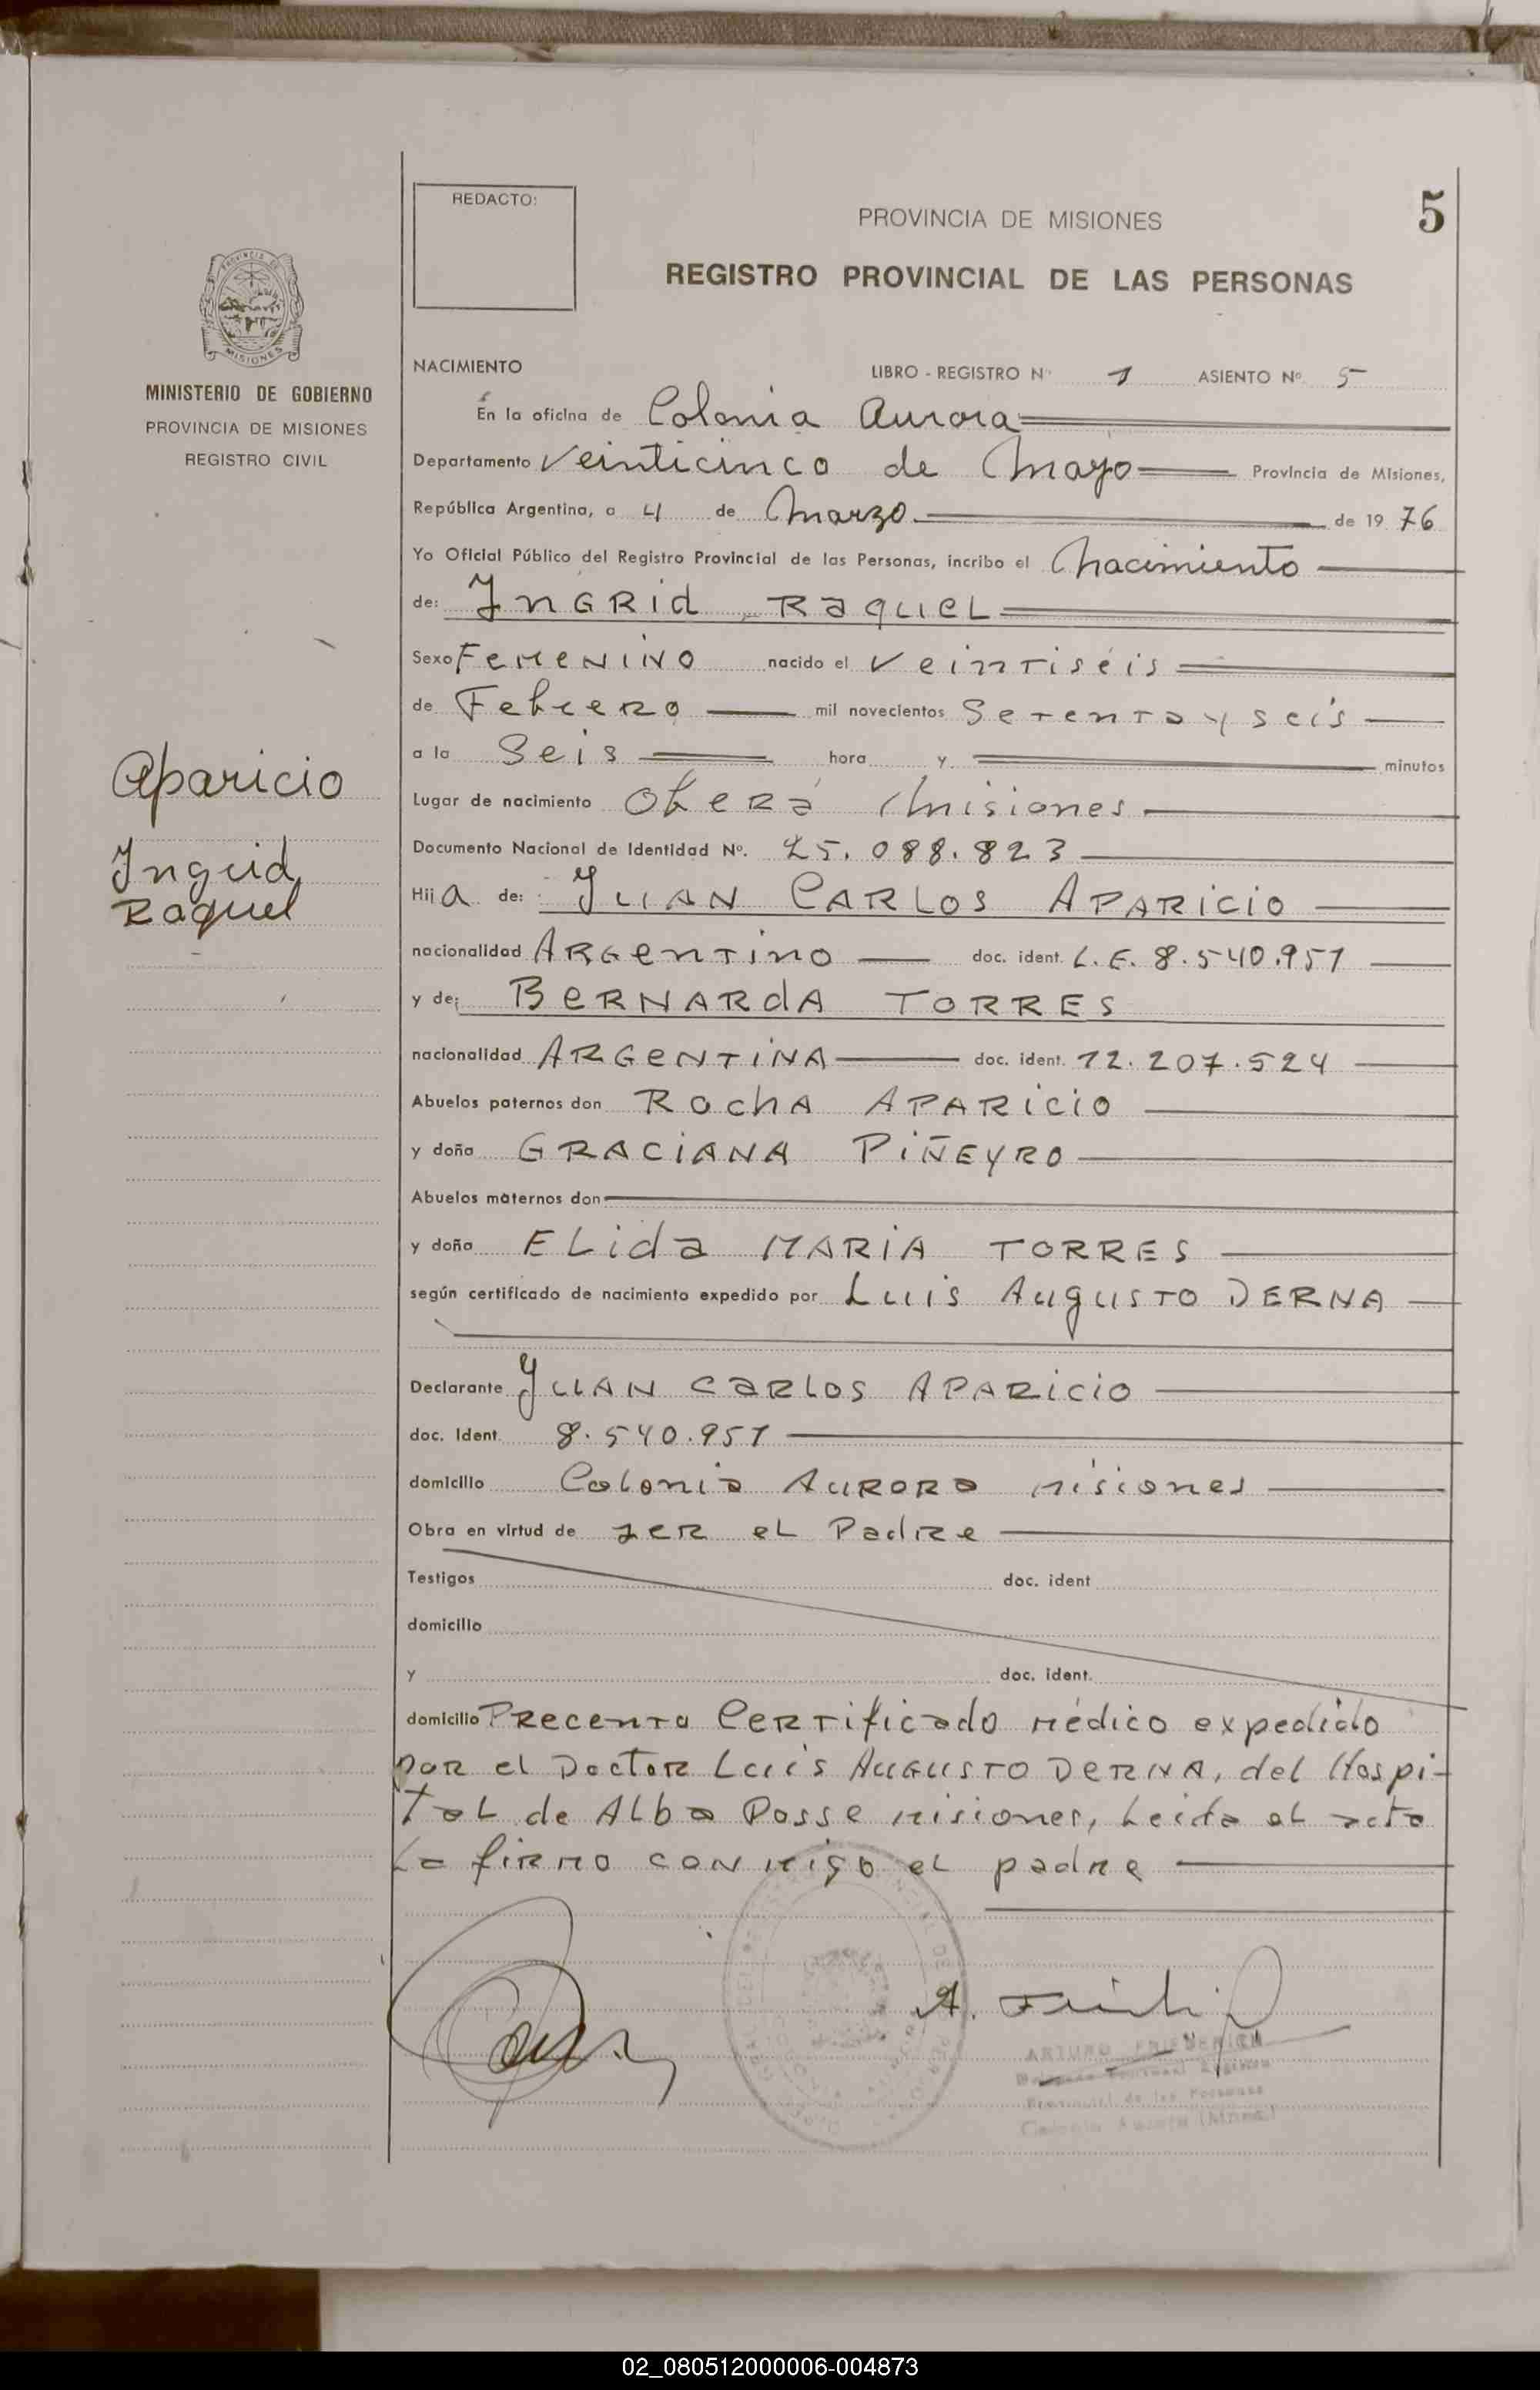 REDACTO:
5
PROVINCIA DE MISIONES
REGISTRO PROVINCIAL DE LAS PERSONAS
PROVINCIA DE
MISIONES
MINISTERIO DE GOBIERNO
PROVINCIA DE MISIONES
REGISTRO CIVIL
Aparicio
Ingrid
Raquel
NACIMIENTO LIBRO - REGISTRO Nº 1 ASIENTO Nº 5
En la oficina de Colonia Aurora
Departamento Veinticinco de Mayo Provincia de Misiones,
República Argentina, a 4 de Marzo de 1976
Yo Oficial Público del Registro Provincial de las Personas, incribo el Nacimiento
de: INGRid RaqueL
Sexo FeMENiNO nacido el Veintiséis
de Febrero mil novecientos Setenta y seis
a la Seis hora y minutos
Lugar de nacimiento Oberá Misiones
Documento Nacional de Identidad Nº. 25.088.823
Hija de: JUAN CARLOS APARiciO
nacionalidad ARGentino doc. ident. L.E. 8.540.951
y de: BeRNARdA TORRES
nacionalidad ARGeNTiNA doc. ident. 12.207.524
Abuelos paternos don RochA APARiciO
y doña GRACiANA PiÑEyRO
Abuelos maternos don
y doña ELida MARiA TORRES
según certificado de nacimiento expedido por Luis AugusTO DERNA
Declarante JUAN CaRLOS APARiciO
doc. Ident. 8.540.951
domicilio Colonia AuRORa Misiones
Obra en virtud de seR eL PadRe
Testigos doc. ident
domicilio
y doc. ident.
domicilio PRecento CeRTificado Médico expedido
poR el DoctoR Luis AUGUSTO DeRNA, del Hospi-
TaL de ALba Posse Misiones, Leida eL acta
La fiRMO CON Migo eL padRe
A.
ARTURO FRIEDERICH
Provincial de las Personas
Colonia Aurora (Mnes.)
02_080512000006-004873